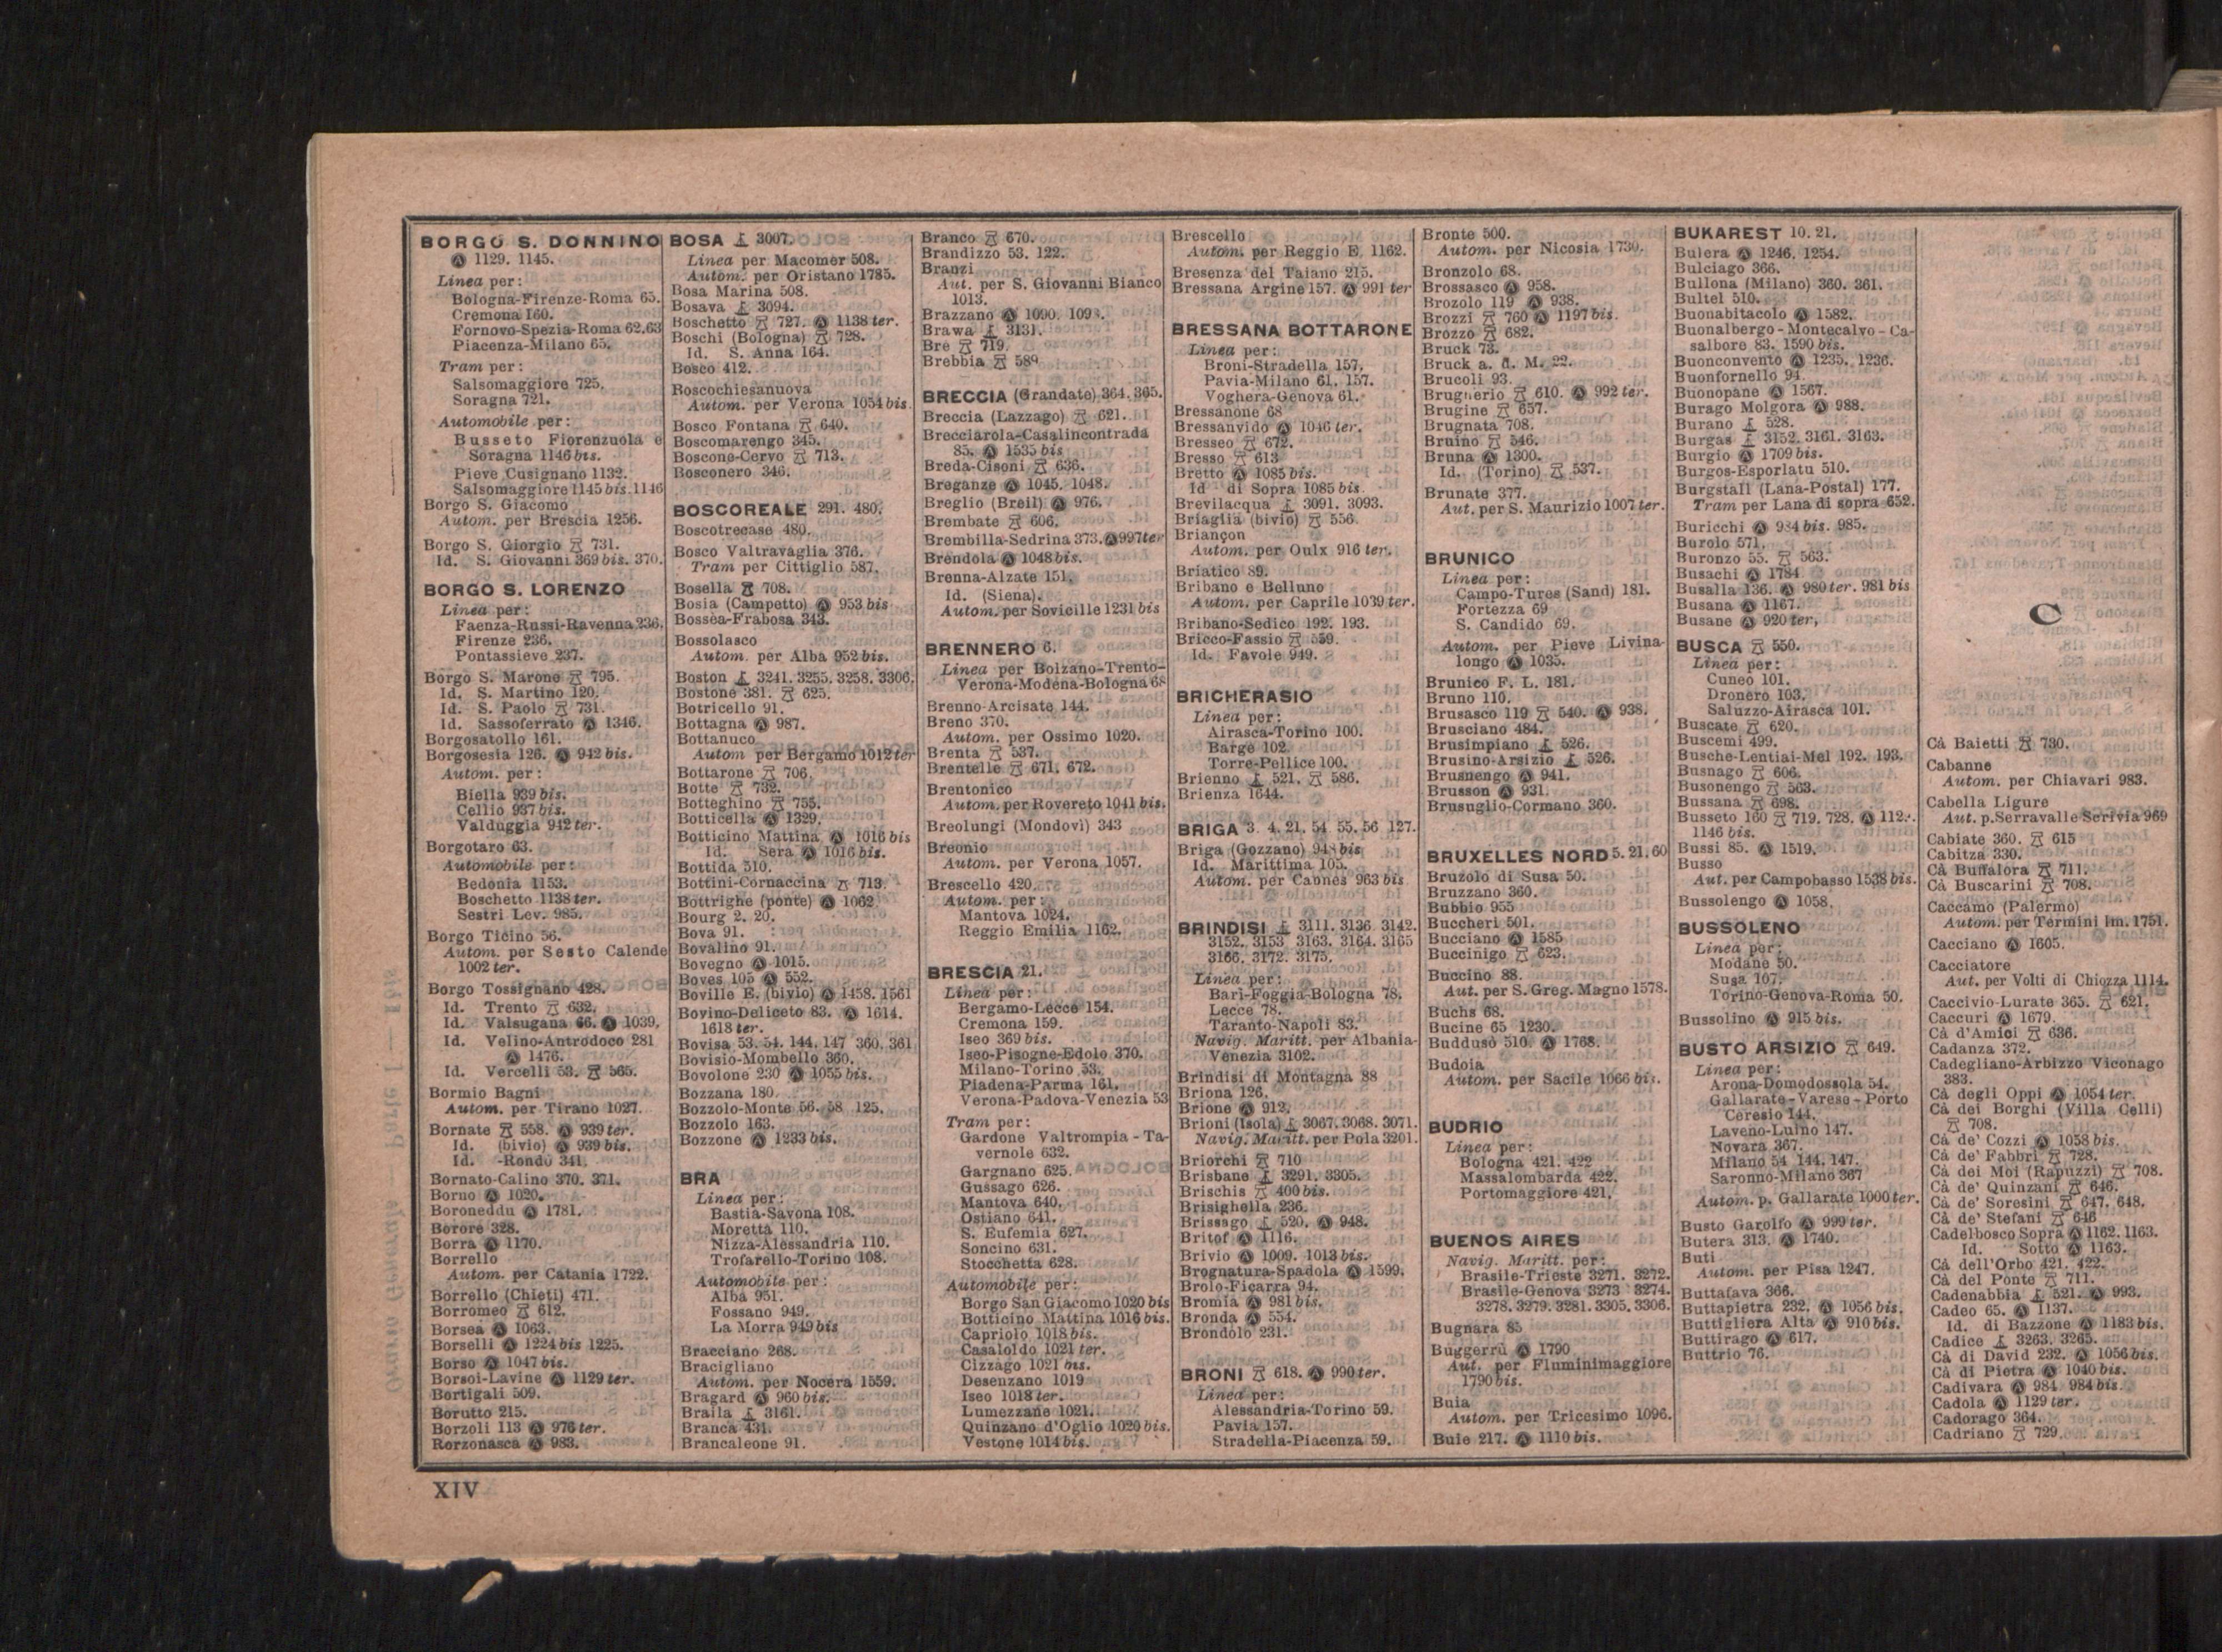 BORGO S. DONNINO
Ⓐ 1129. 1145.
Linea per:
Bologna-Firenze-Roma 65.
Cremona 160.
Fornovo-Spezia-Roma 62.63
Piacenza-Milano 65.
Tram per:
Salsomaggiore 725.
Soragna 721.
Automobile per:
Busseto Fiorenzuola e
Soragna 1146 bis.
Pieve Cusignano 1132.
Salsomaggiore 1145 bis. 1146
Borgo S. Giacomo
Autom. per Brescia 1256.
Borgo S. Giorgio 731.
Id. S. Giovanni 369 bis. 370.
BORGO S. LORENZO
Linea per:
Faenza-Russi-Ravenna 236.
Firenze 236.
Pontassieve 237.
Borgo S. Marone 795.
Id. S. Martino 120.
Id. S. Paolo 731.
Id. Sassoferrato Ⓐ 1346.
Borgosatollo 161.
Borgosesia 126. Ⓐ 942 bis.
Autom. per:
Biella 939 bis.
Cellio 937 bis.
Valduggia 942 ter.
Borgotaro 63.
Automobile per:
Bedonia 1153.
Boschetto 1138 ter.
Sestri Lev. 985.
Borgo Ticino 56.
Autom. per Sesto Calende
1002 ter.
Borgo Tossignano 428.
Id. Trento 632.
Id. Valsugana 66. Ⓐ 1039.
Id. Velino-Antrodoco 281
Ⓐ 1476.
Id. Vercelli 53. 565.
Bormio Bagni
Autom. per Tirano 1027.
Bornate 558. Ⓐ 939 ter.
Id. (bivio) Ⓐ 939 bis.
Id. -Rondò 341.
Bornato-Calino 370. 371.
Borno Ⓐ 1020.
Boroneddu Ⓐ 1781.
Borore 328.
Borra Ⓐ 1170.
Borrello
Autom. per Catania 1722.
Borrello (Chieti) 471.
Borromeo 612.
Borsea Ⓐ 1063.
Borselli Ⓐ 1224 bis 1225.
Borso Ⓐ 1047 bis.
Borsoi-Lavine Ⓐ 1129 ter.
Bortigali 509.
Borutto 215.
Borzoli 113 Ⓐ 976 ter.
Borzonasca Ⓐ 983.
BOSA 3007.
Linea per Macomer 508.
Autom. per Oristano 1785.
Bosa Marina 508.
Bosava 3094.
Boschetto 727. Ⓐ 1138 ter.
Boschi (Bologna) 728.
Id. S. Anna 164.
Bosco 412.
Boscochiesanuova
Autom. per Verona 1054 bis.
Bosco Fontana 640.
Boscomarengo 345.
Boscone-Cervo 713.
Bosconero 346.
BOSCOREALE 291. 480.
Boscotrecase 480.
Bosco Valtravaglia 376.
Tram per Cittiglio 587.
Bosella 708.
Bosia (Campetto) Ⓐ 953 bis
Bossea-Frabosa 343.
Bossolasco
Autom. per Alba 952 bis.
Boston 3241. 3255. 3258. 3306.
Bostone 381. 625.
Botricello 91.
Bottagna Ⓐ 987.
Bottanuco
Autom per Bergamo 1012 ter
Bottarone 706.
Botte 732.
Botteghino 755.
Botticella Ⓐ 1329.
Botticino Mattina Ⓐ 1016 bis
Id. Sera Ⓐ 1016 bis.
Bottida 510.
Bottini-Cornaccina 713.
Bottrighe (ponte) Ⓐ 1062
Bourg 2. 20.
Bova 91.
Bovalino 91.
Bovegno Ⓐ 1015.
Boves 105 Ⓐ 552.
Boville E. (bivio) Ⓐ 1458. 1561
Bovino-Deliceto 83. Ⓐ 1614.
1618 ter.
Bovisa 53. 54. 144. 147 360. 361
Bovisio-Mombello 360.
Bovolone 230 Ⓐ 1055 bis.
Bozzana 180.
Bozzolo-Monte 56. 58 125.
Bozzolo 163.
Bozzone Ⓐ 1233 bis.
BRA
Linea per:
Bastia-Savona 108.
Moretta 110.
Nizza-Alessandria 110.
Trofarello-Torino 108.
Automobile per:
Alba 951.
Fossano 949.
La Morra 949 bis
Bracciano 268.
Bracigliano
Autom. per Nocera 1559.
Bragard Ⓐ 960 bis.
Braila 3161.
Branca 431.
Brancaleone 91.
Branco 670.
Brandizzo 53. 122.
Branzi
Aut. per S. Giovanni Bianco
1013.
Brazzano Ⓐ 1090.
Brawa 3131.
Bre 719.
Brebbia
BRECCIA (Grandate) 364. 365.
Breccia (Lazzago) 621.
Brecciarola-Casalincontrada
85. Ⓐ 1535 bis
Breda-Cisoni 636.
Breganze Ⓐ 1045. 1048.
Breglio (Breil) Ⓐ 976.
Brembate 606.
Brembilla-Sedrina 373. Ⓐ 997 ter
Brendola Ⓐ 1048 bis.
Brenna-Alzate 151.
Id. (Siena).
Autom. per Sovicille 1231 bis
BRENNERO 6.
Linea per Bolzano-Trento-
Verona-Modena-Bologna 68
Brenno-Arcisate 144.
Breno 370.
Autom. per Ossimo 1020.
Brenta 537.
Brentelle 671. 672.
Brentonico
Autom. per Rovereto 1041 bis.
Breolungi (Mondovì) 343
Breonio
Autom. per Verona 1057.
Brescello 420.
Autom. per:
Mantova 1024.
Reggio Emilia 1162.
BRESCIA 21.
Linea per:
Bergamo-Lecce 154.
Cremona 159.
Iseo 369 bis.
Iseo-Pisogne-Edolo 370.
Milano-Torino 53.
Piadena-Parma 161.
Verona-Padova-Venezia 53
Tram per:
Gardone Valtrompia - Ta-
vernole 632.
Gargnano 625.
Gussago 626.
Mantova 640.
Ostiano 641.
S. Eufemia 627.
Soncino 631.
Stocchetta 628.
Automobile per:
Borgo San Giacomo 1020 bis
Botticino Mattina 1016 bis.
Capriolo 1018 bis.
Casaloldo 1021 ter.
Cizzago 1021 bis.
Desenzano 1019
Iseo 1018 ter.
Lumezzane 1021.
Quinzano d'Oglio 1020 bis.
Vestone 1014 bis.
Brescello
Autom. per Reggio E. 1162.
Bresenza del Taiano 215.
Bressana Argine 157. Ⓐ 991 ter
BRESSANA BOTTARONE
Linea per:
Broni-Stradella 157.
Pavia-Milano 61. 157.
Voghera-Genova 61.
Bressanone 68
Bressanvido Ⓐ 1046 ter.
Bresseo 672.
Bresso 613
Bretto Ⓐ 1085 bis.
Id di Sopra 1085 bis
Brevilacqua 3091. 3093.
Briaglia (bivio) 556
Briançon
Autom. per Oulx 916 ter.
Briatico 89.
Bribano e Belluno
Autom. per Caprile 1039 ter.
Bribano-Sedico 192. 193.
Bricco-Fassio 559.
Id. Favole 949.
BRICHERASIO
Linea per:
Airasca-Torino 100.
Barge 102.
Torre-Pellice 100.
Brienno 521. 586.
Brienza 1644.
BRIGA 3. 4. 21. 54 55. 56 127.
Briga (Gozzano) 948 bis
Id. Marittima 105.
Autom. per Cannes 963 bis
BRINDISI 3111. 3136 3142.
3152. 3153 3163. 3164. 3165
3166. 3172. 3175.
Linea per:
Bari-Foggia-Bologna 78.
Lecce 78.
Taranto-Napoli 83.
Navig. Maritt. per Albania-
Venezia 3102.
Brindisi di Montagna 88
Briona 126.
Brione Ⓐ 912.
Brioni (Isola) 3067. 3068. 3071.
Navig. Maritt. per Pola 3201.
Briorchi 710
Brisbane 3291. 3305.
Brischis 400 bis.
Brisighella 236.
Brissago 520. Ⓐ 948.
Britof Ⓐ 1116.
Brivio Ⓐ 1009. 1013 bis.
Brognatura-Spadola Ⓐ 1599.
Brolo-Ficarra 94.
Bromia Ⓐ 981 bis.
Bronda Ⓐ 554.
Brondolo 231.
BRONI 618. Ⓐ 990 ter.
Linea per:
Alessandria-Torino 59.
Pavia 157.
Stradella-Piacenza 59.
Bronte 500.
Autom. per Nicosia 1730.
Bronzolo 68.
Brossasco Ⓐ 958.
Brozolo 119 Ⓐ 938.
Brozzi 760 Ⓐ 1197 bis.
Brozzo 682.
Bruck 73.
Bruck a. d. M. 22.
Brucoli 93.
Brugherio 610. Ⓐ 992 ter.
Brugine 657.
Brugnata 708.
Bruino 546.
Bruna Ⓐ 1300.
Id. (Torino) 537.
Brunate 377.
Aut. per S. Maurizio 1007 ter.
BRUNICO
Linea per:
Campo-Tures (Sand) 181.
Fortezza 69
S. Candido 69.
Autom. per Pieve Livina-
longo Ⓐ 1035.
Brunico F. L. 181.
Bruno 110.
Brusasco 119 540. Ⓐ 938.
Brusciano 484.
Brusimpiano 526.
Brusino-Arsizio 526.
Brusnengo Ⓐ 941.
Brusson Ⓐ 931.
Brusuglio-Cormano 360.
BRUXELLES NORD 5. 21. 60
Bruzolo di Susa 50.
Bruzzano 360.
Bubbio 955
Buccheri 501.
Bucciano Ⓐ 1585
Buccinigo 623.
Buccino 88.
Aut. per S. Greg. Magno 1578.
Buchs 68.
Bucine 65 1230.
Buddusò 510. Ⓐ 1768.
Budoia
Autom. per Sacile 1066 bis.
BUDRIO
Linea per:
Bologna 421. 422
Massalombarda 422.
Portomaggiore 421.
BUENOS AIRES
Navig. Maritt. per:
Brasile-Trieste 3271. 3272.
Brasile-Genova 3273 3274.
3278. 3279. 3281. 3305. 3306.
Bugnara 85
Buggerru Ⓐ 1790
Aut. per Fluminimaggiore
1790 bis.
Buia
Autom. per Tricesimo 1096.
Buie 217. Ⓐ 1110 bis.
BUKAREST 10. 21.
Bulera Ⓐ 1246. 1254.
Bulciago 366.
Bullona (Milano) 360. 361.
Bultel 510.
Buonabitacolo Ⓐ 1582.
Buonalbergo - Montecalvo - Ca-
salbore 83. 1590 bis.
Buonconvento Ⓐ 1235. 1236.
Buonfornello 94.
Buonopane Ⓐ 1567.
Burago Molgora Ⓐ 988.
Burano 528.
Burgas 3152. 3161. 3163.
Burgio Ⓐ 1709 bis.
Burgos-Esporlatu 510.
Burgstall (Lana-Postal) 177.
Tram per Lana di sopra 652.
Buricchi Ⓐ 984 bis. 985.
Burolo 571.
Buronzo 55. 563.
Busachi Ⓐ 1784
Busalla 136. Ⓐ 980 ter. 981 bis
Busana Ⓐ 1167.
Busane Ⓐ 920 ter.
BUSCA 550.
Linea per:
Cuneo 101.
Dronero 103.
Saluzzo-Airasca 101.
Buscate 620.
Buscemi 499.
Busche-Lentiai-Mel 192. 193.
Busnago 606.
Busonengo 563.
Bussana 698.
Busseto 160 719. 728. Ⓐ
1146 bis.
Bussi 85. Ⓐ 1519.
Busso
Aut. per Campobasso 1538 bis.
Bussolengo Ⓐ 1058.
BUSSOLENO
Linea per:
Modane 50.
Susa 107.
Torino-Genova-Roma 50.
Bussolino Ⓐ 915 bis.
BUSTO ARSIZIO 649.
Linea per:
Arona-Domodossola 54.
Gallarate - Varese - Porto
Ceresio 144.
Laveno-Luino 147.
Novara 367.
Milano 54 144. 147.
Saronno-Milano 367
Autom. p. Gallarate 1000 ter.
Busto Garolfo Ⓐ 999 ter.
Butera 313. Ⓐ 1740.
Buti
Autom. per Pisa 1247.
Buttafava 366.
Buttapietra 232. Ⓐ 1056 bis.
Buttigliera Alta Ⓐ 910 bis.
Buttirago Ⓐ 617.
Buttrio 76.
C
Cà Baietti 730.
Cabanne
Autom. per Chiavari 983.
Cabella Ligure
Aut. p. Serravalle Scrivia 969
Cabiate 360. 615
Cabitza 330.
Cà Buffalora 711.
Cà Buscarini 708.
Caccamo (Palermo)
Autom. per Termini Im. 1751.
Cacciano Ⓐ 1605.
Cacciatore
Aut. per Volti di Chiozza 1114.
Caccivio-Lurate 365. 621.
Caccuri Ⓐ 1679.
Cà d'Amici 636.
Cadanza 372.
Cadegliano-Arbizzo Viconago
383.
Cà degli Oppi Ⓐ 1054 ter.
Cà dei Borghi (Villa Celli)
708.
Cà de' Cozzi Ⓐ 1058 bis.
Cà de' Fabbri 728.
Cà dei Moi (Rapuzzi) 708.
Cà de' Quinzani 646.
Cà de' Soresini 647. 648.
Cà de' Stefani 646
Cadelbosco Sopra Ⓐ 1162. 1163.
Id. Sotto Ⓐ 1163.
Cà dell'Orbo 421. 422.
Cà del Ponte 711.
Cadenabbia 521. Ⓐ 993.
Cadeo 65. Ⓐ 1137.
Id. di Bazzone Ⓐ 1183 bis.
Cadice 3263. 3265.
Cà di David 232. Ⓐ 1056 bis.
Cà di Pietra Ⓐ 1040 bis.
Cadivara Ⓐ 984 984 bis.
Cadola Ⓐ 1129 ter.
Cadorago 364.
Cadriano 729.
XIV